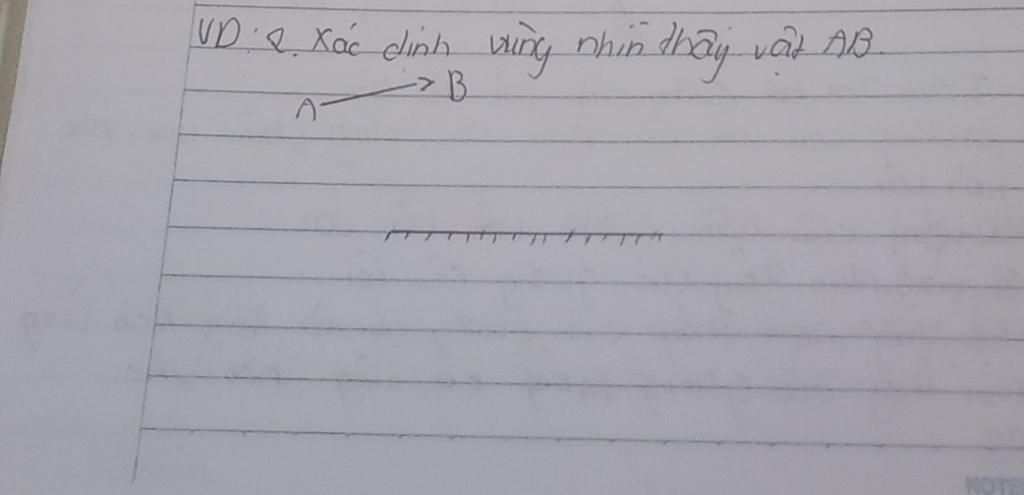 VD: 2. Xác dinh vùng nhìn thấy vật AB.
A B
NOTE